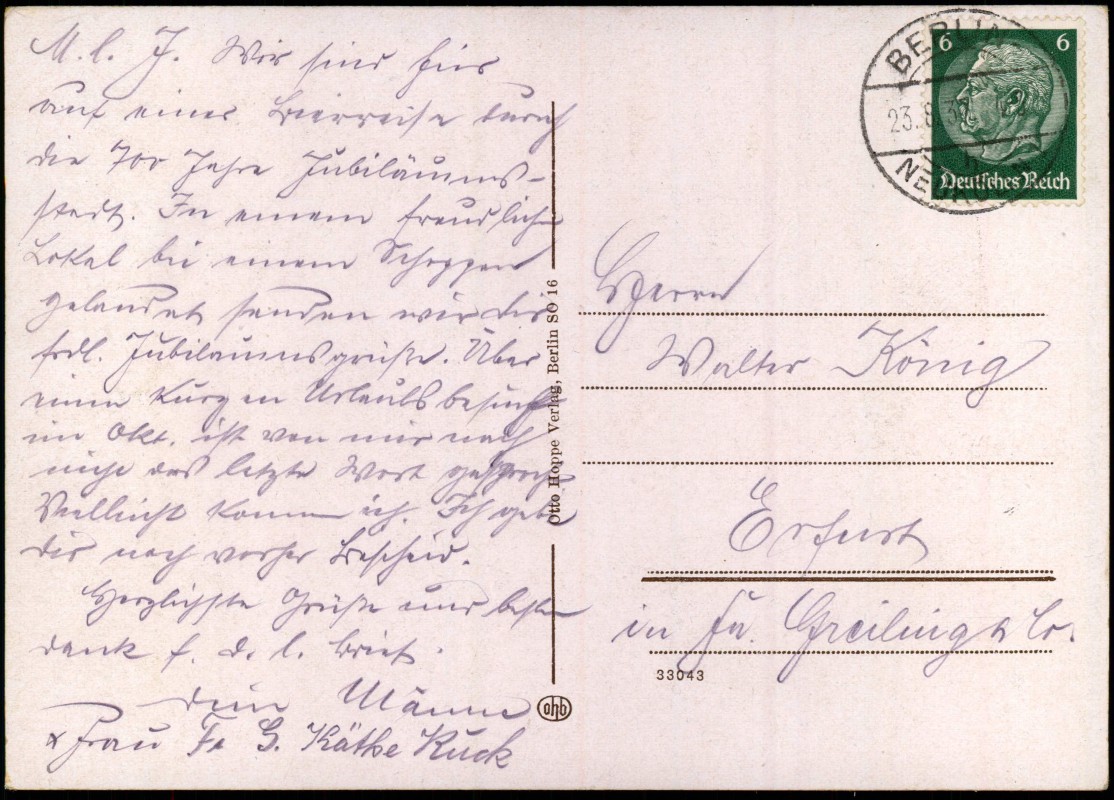 M. l. J. Wir sind hier
auf einer Bierreise durch
die 700 Jahre Jubiläums-
stadt. In einem freundlichen
Lokal bei einem Schoppen
gelandet senden wir Dir
frdl. Jubiläumsgrüße. Über
einen kurzen Urlaubsbesuch
im Okt. ist von mir noch
nicht das letzte Wort gesprochen
Vielleicht komm ich. Ich gebe
Dir noch vorher Bescheid.
Herzlichste Grüße und besten
Dank f. d. l. Brief.
Dein Männe
& Frau Käthe Kuck
Otto Hoppe Verlag, Berlin SO 16
ohb
BERLIN
23.8.37
6 6
Deutsches Reich
Herrn
Walter König
Erfurt
in Fa. Greiling & Co.
33043